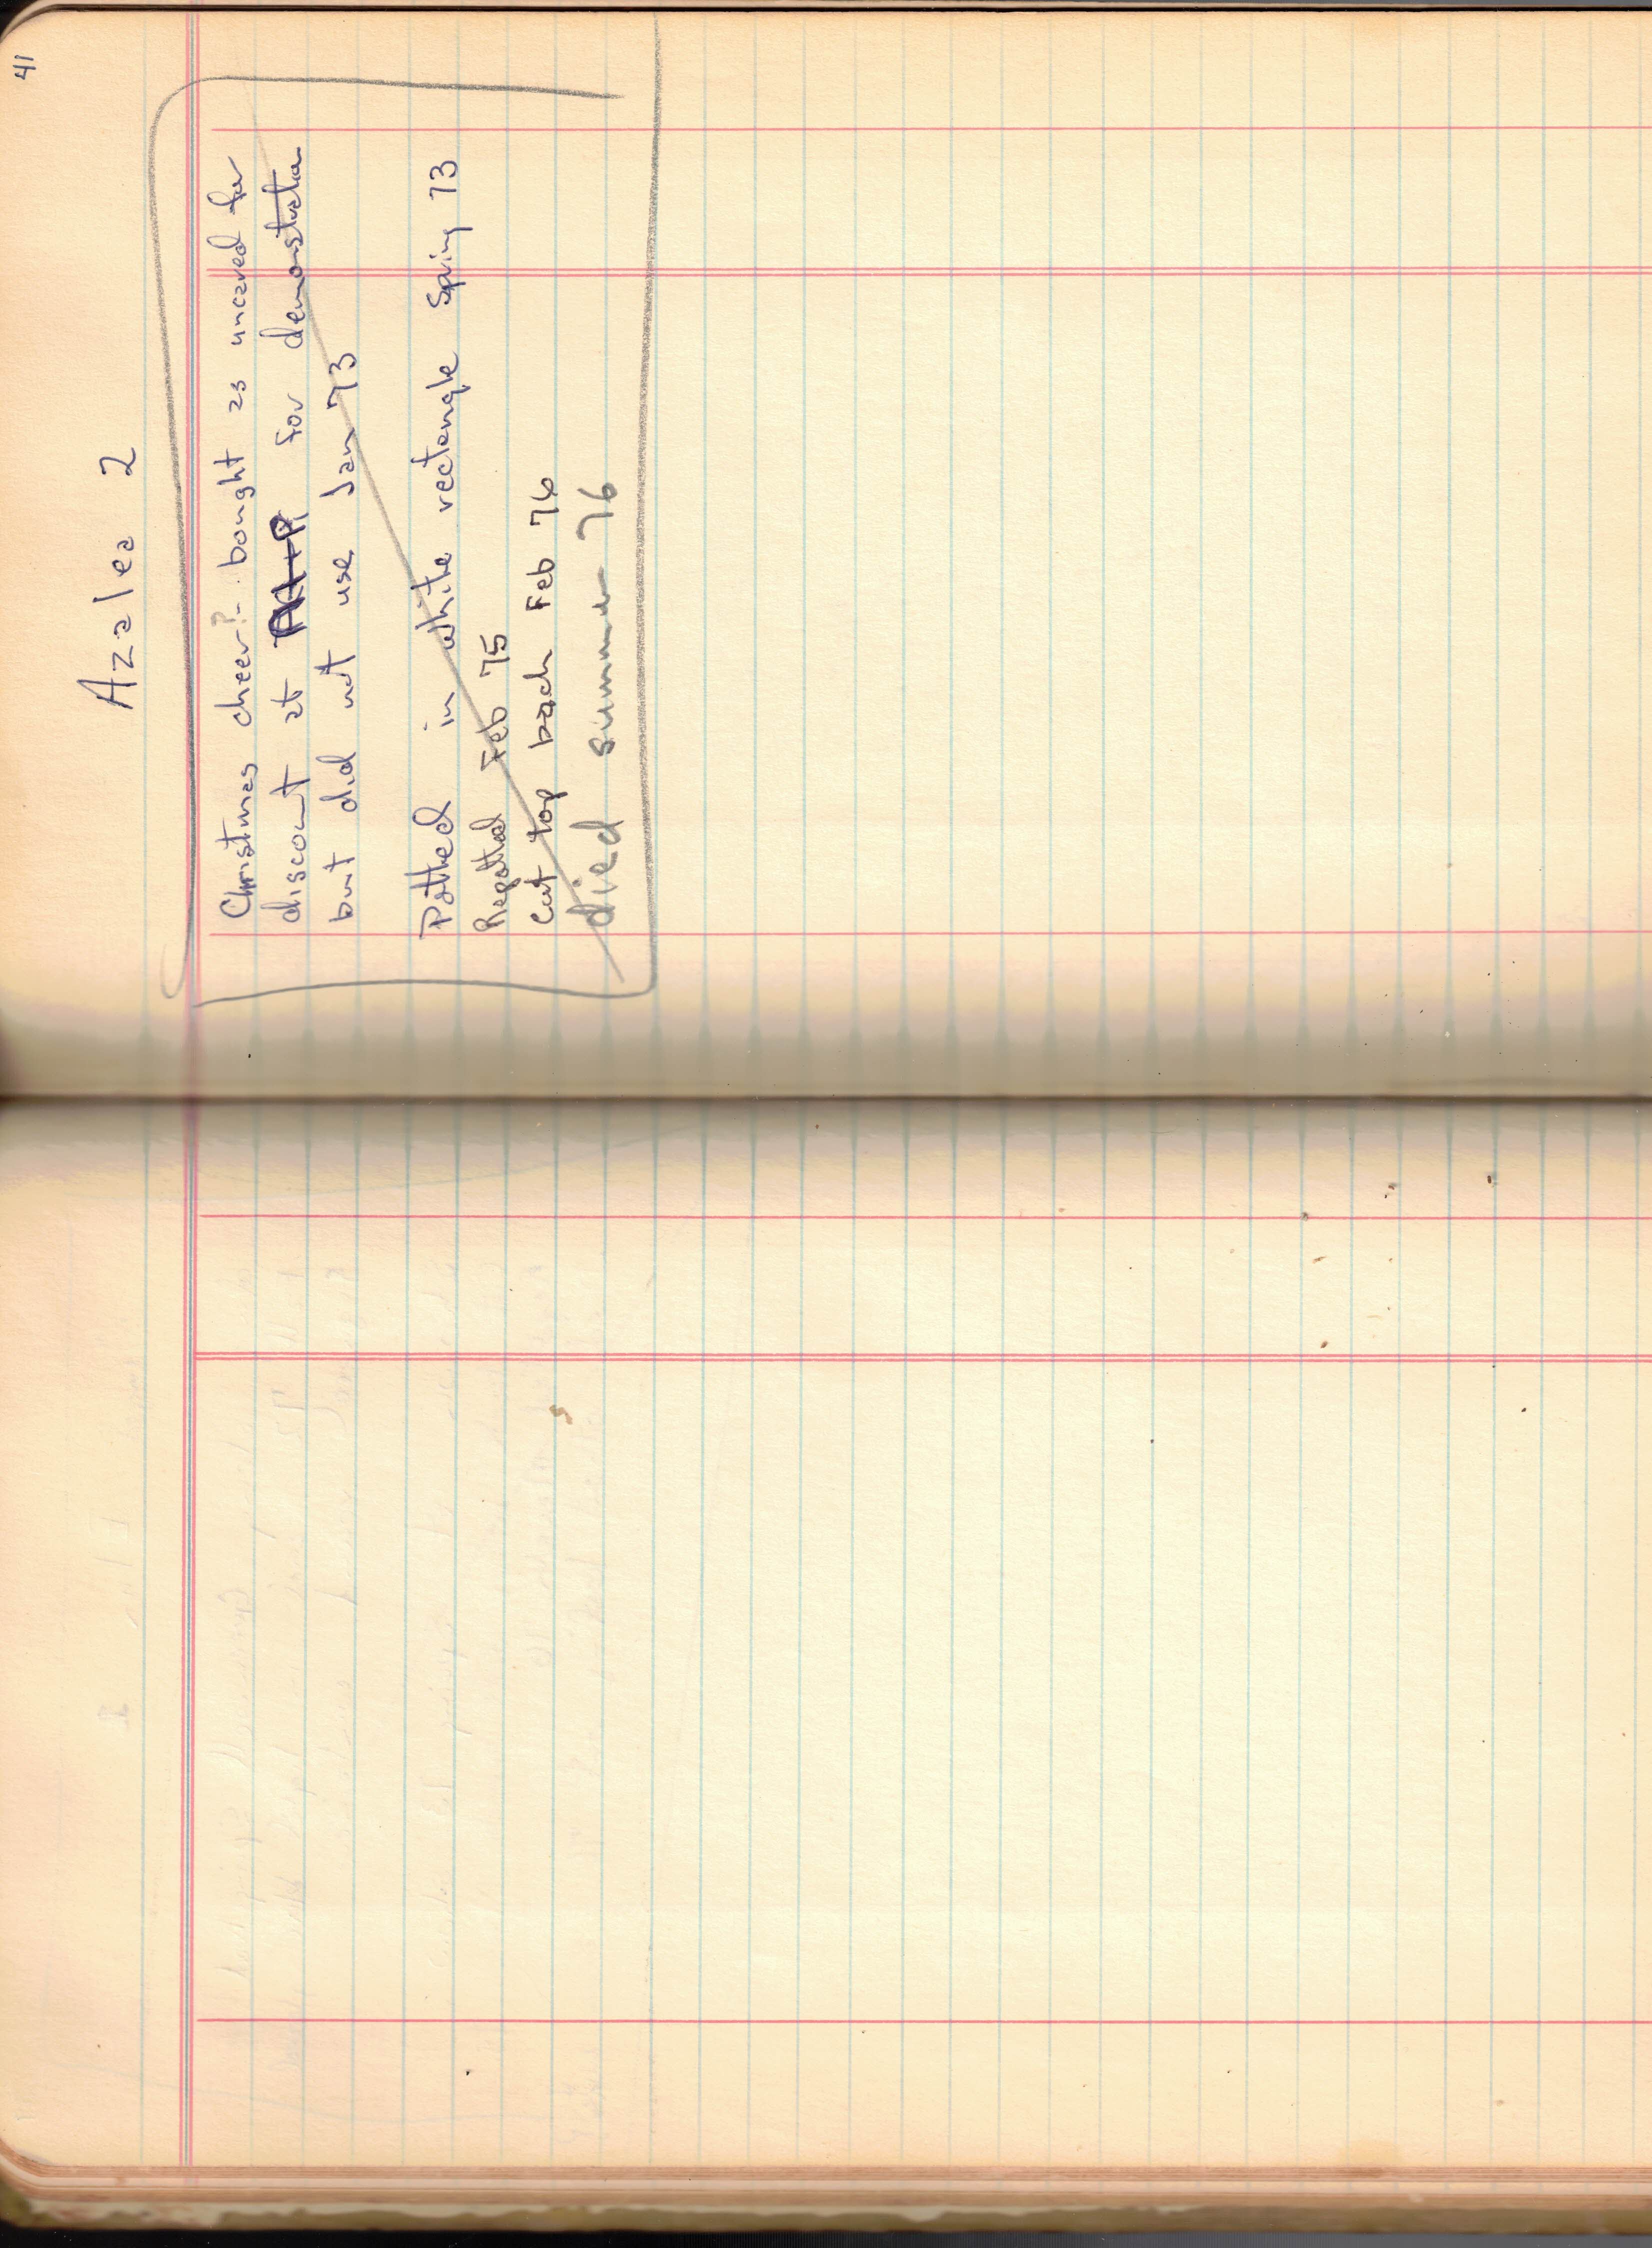 41
Azalea 2
Christmas cheer?- bought as uncared for
discount at for demonstration
but did not use Jan 73
Potted in white rectangle Spring 73
Repotted Feb 75
Cut top back Feb 76
died summer 76